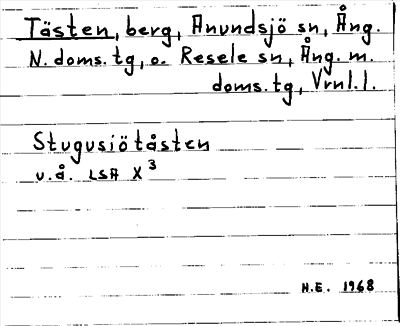 Tåsten, berg, Anundsjö sn, Ång.
N. doms. tg, o. Resele sn, Ång. m.
doms. tg, Vrnl.l.
Stugusjötåsten
u.å. LSA X 3
H.E. 1968